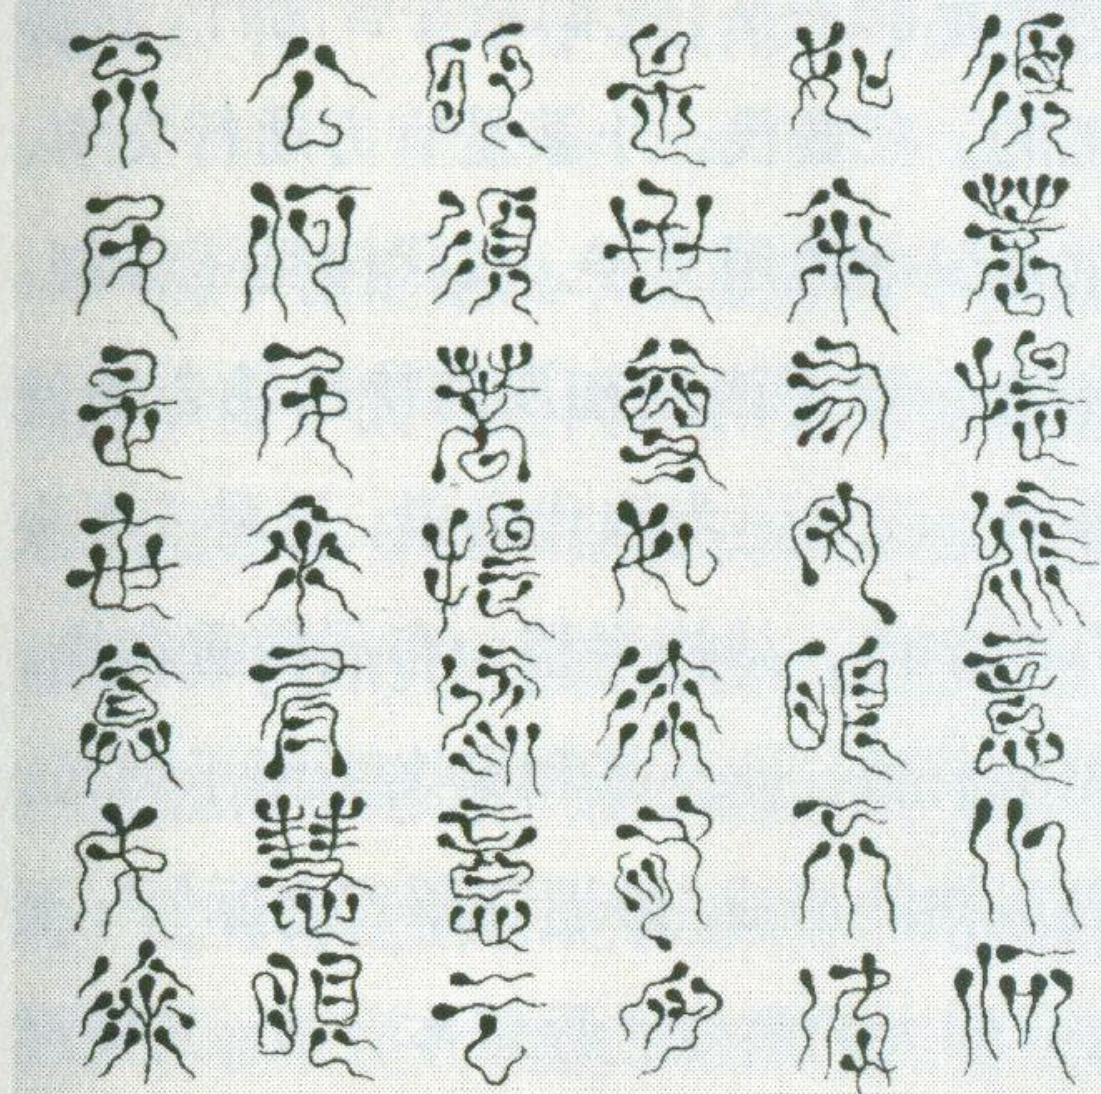 須菩提於意云何
如來有肉眼不如
是世尊如來有肉
眼須菩提於意云
云何如來有慧眼
不如是世尊如來